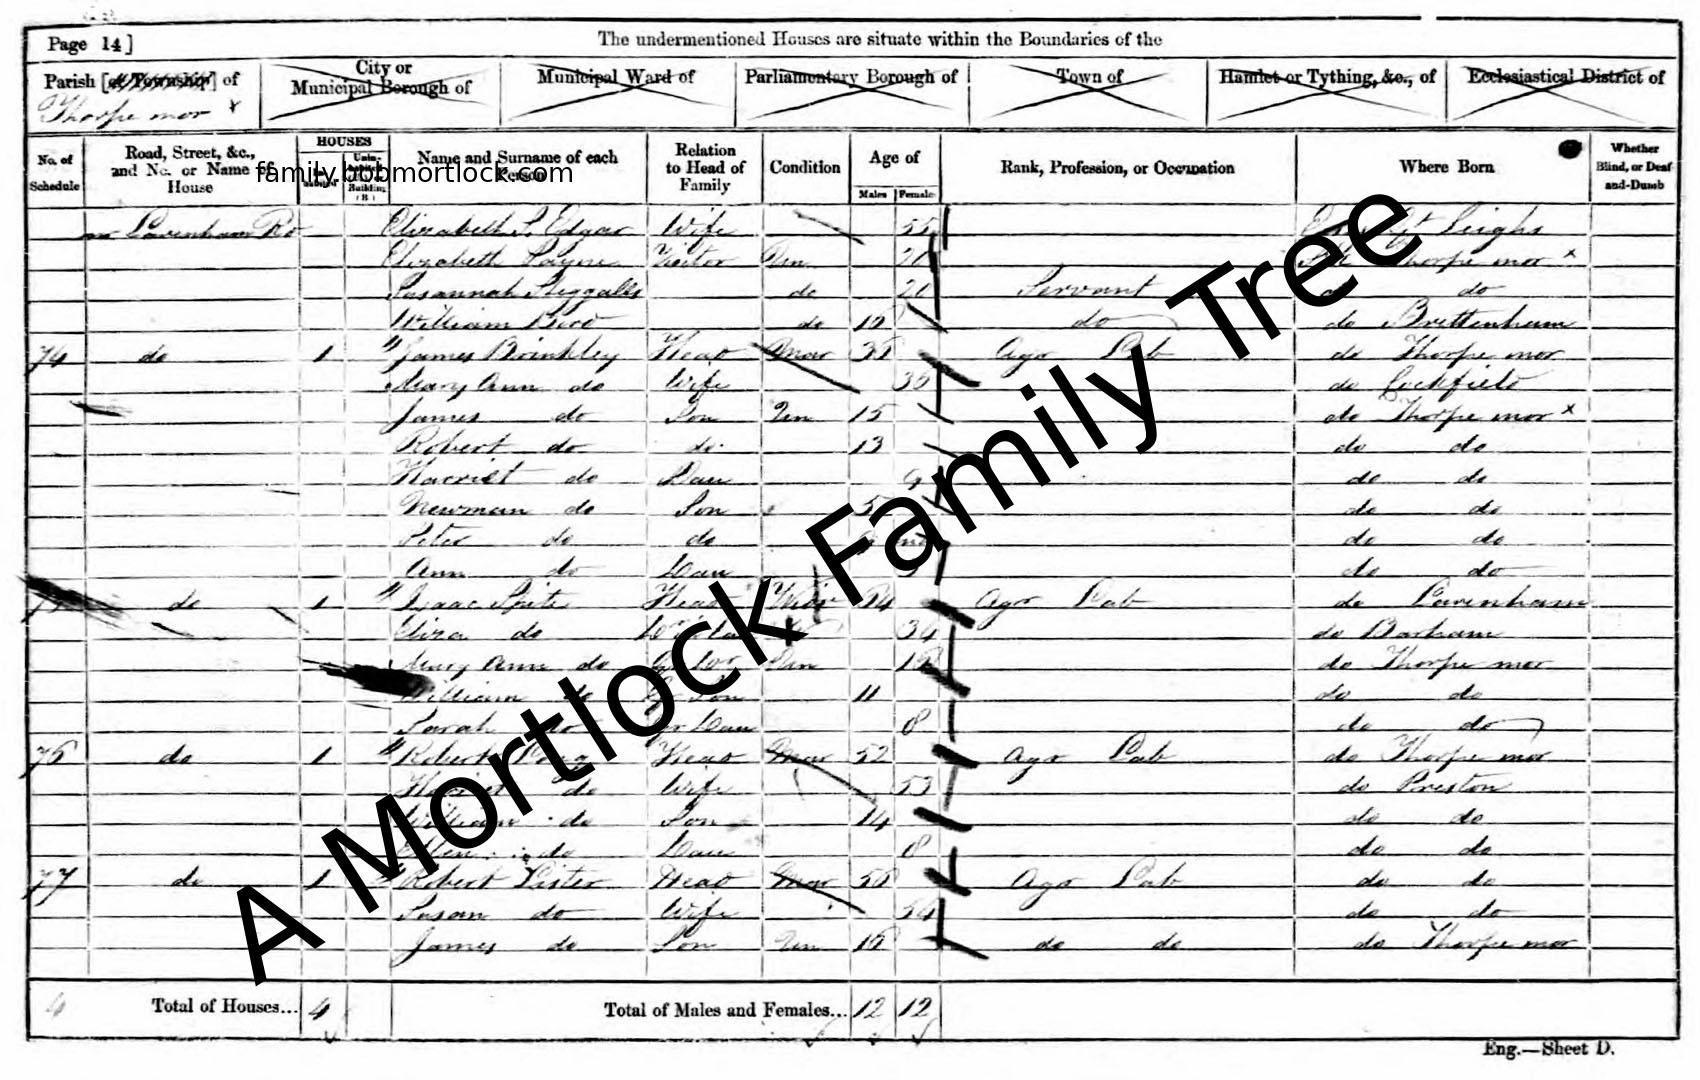 Page 14]
The undermentioned Houses are situate within the Boundaries of the
Parish [or Township] of
City or Municipal Borough of
Municipal Ward of
Parliamentary Borough of
Town of
Hamlet or Tything, &c., of
Ecclesiastical District of
Thorpe mor x
No. of Schedule
Road, Street, &c., and No. or Name of House
HOUSES
Name and Surname of each Person
Relation to Head of Family
Condition
Age of
Males
Females
Rank, Profession, or Occupation
Where Born
Whether Blind, or Deaf-and-Dumb
family.bobmortlock.com
Lavenham Ro Elizabeth S. Edgar Wife 55 Leighs
Elizabeth Visitor Un Thorpe mor x
Susannah Steggalls do 20 Servant do do
William Bird do do do Brettenham
74 do 1 James Brinkley Head Mar Agr Lab do Thorpe mor
Mary Ann do Wife do Cockfield
James do Son Un 15 do Thorpe mor x
Robert do do 13 do do
Harriet do Dau 9 do do
Newman do Son 5 do do
Peter do do mo do do
Ann do Dau do do
do 1 Isaac Head Agr Lab do Lavenham
Eliza do 34 do Barham
Mary Ann do Un do Thorpe mor
William do Gr Son 11 do do
Sarah do Gr Dau 8 do do
76 do 1 Robert Head Mar 52 Agr Lab do Thorpe mor
Harriet do Wife 53 do Preston
William do Son 14 do do
Ellen do Dau 8 do do
77 do 1 Robert Head Mar Agr Lab do do
Susan do Wife 54 do do
James do Son Un do do do Thorpe mor
4 Total of Houses... 4 Total of Males and Females... 12 12
Eng.—Sheet D.
A Mortlock Family Tree